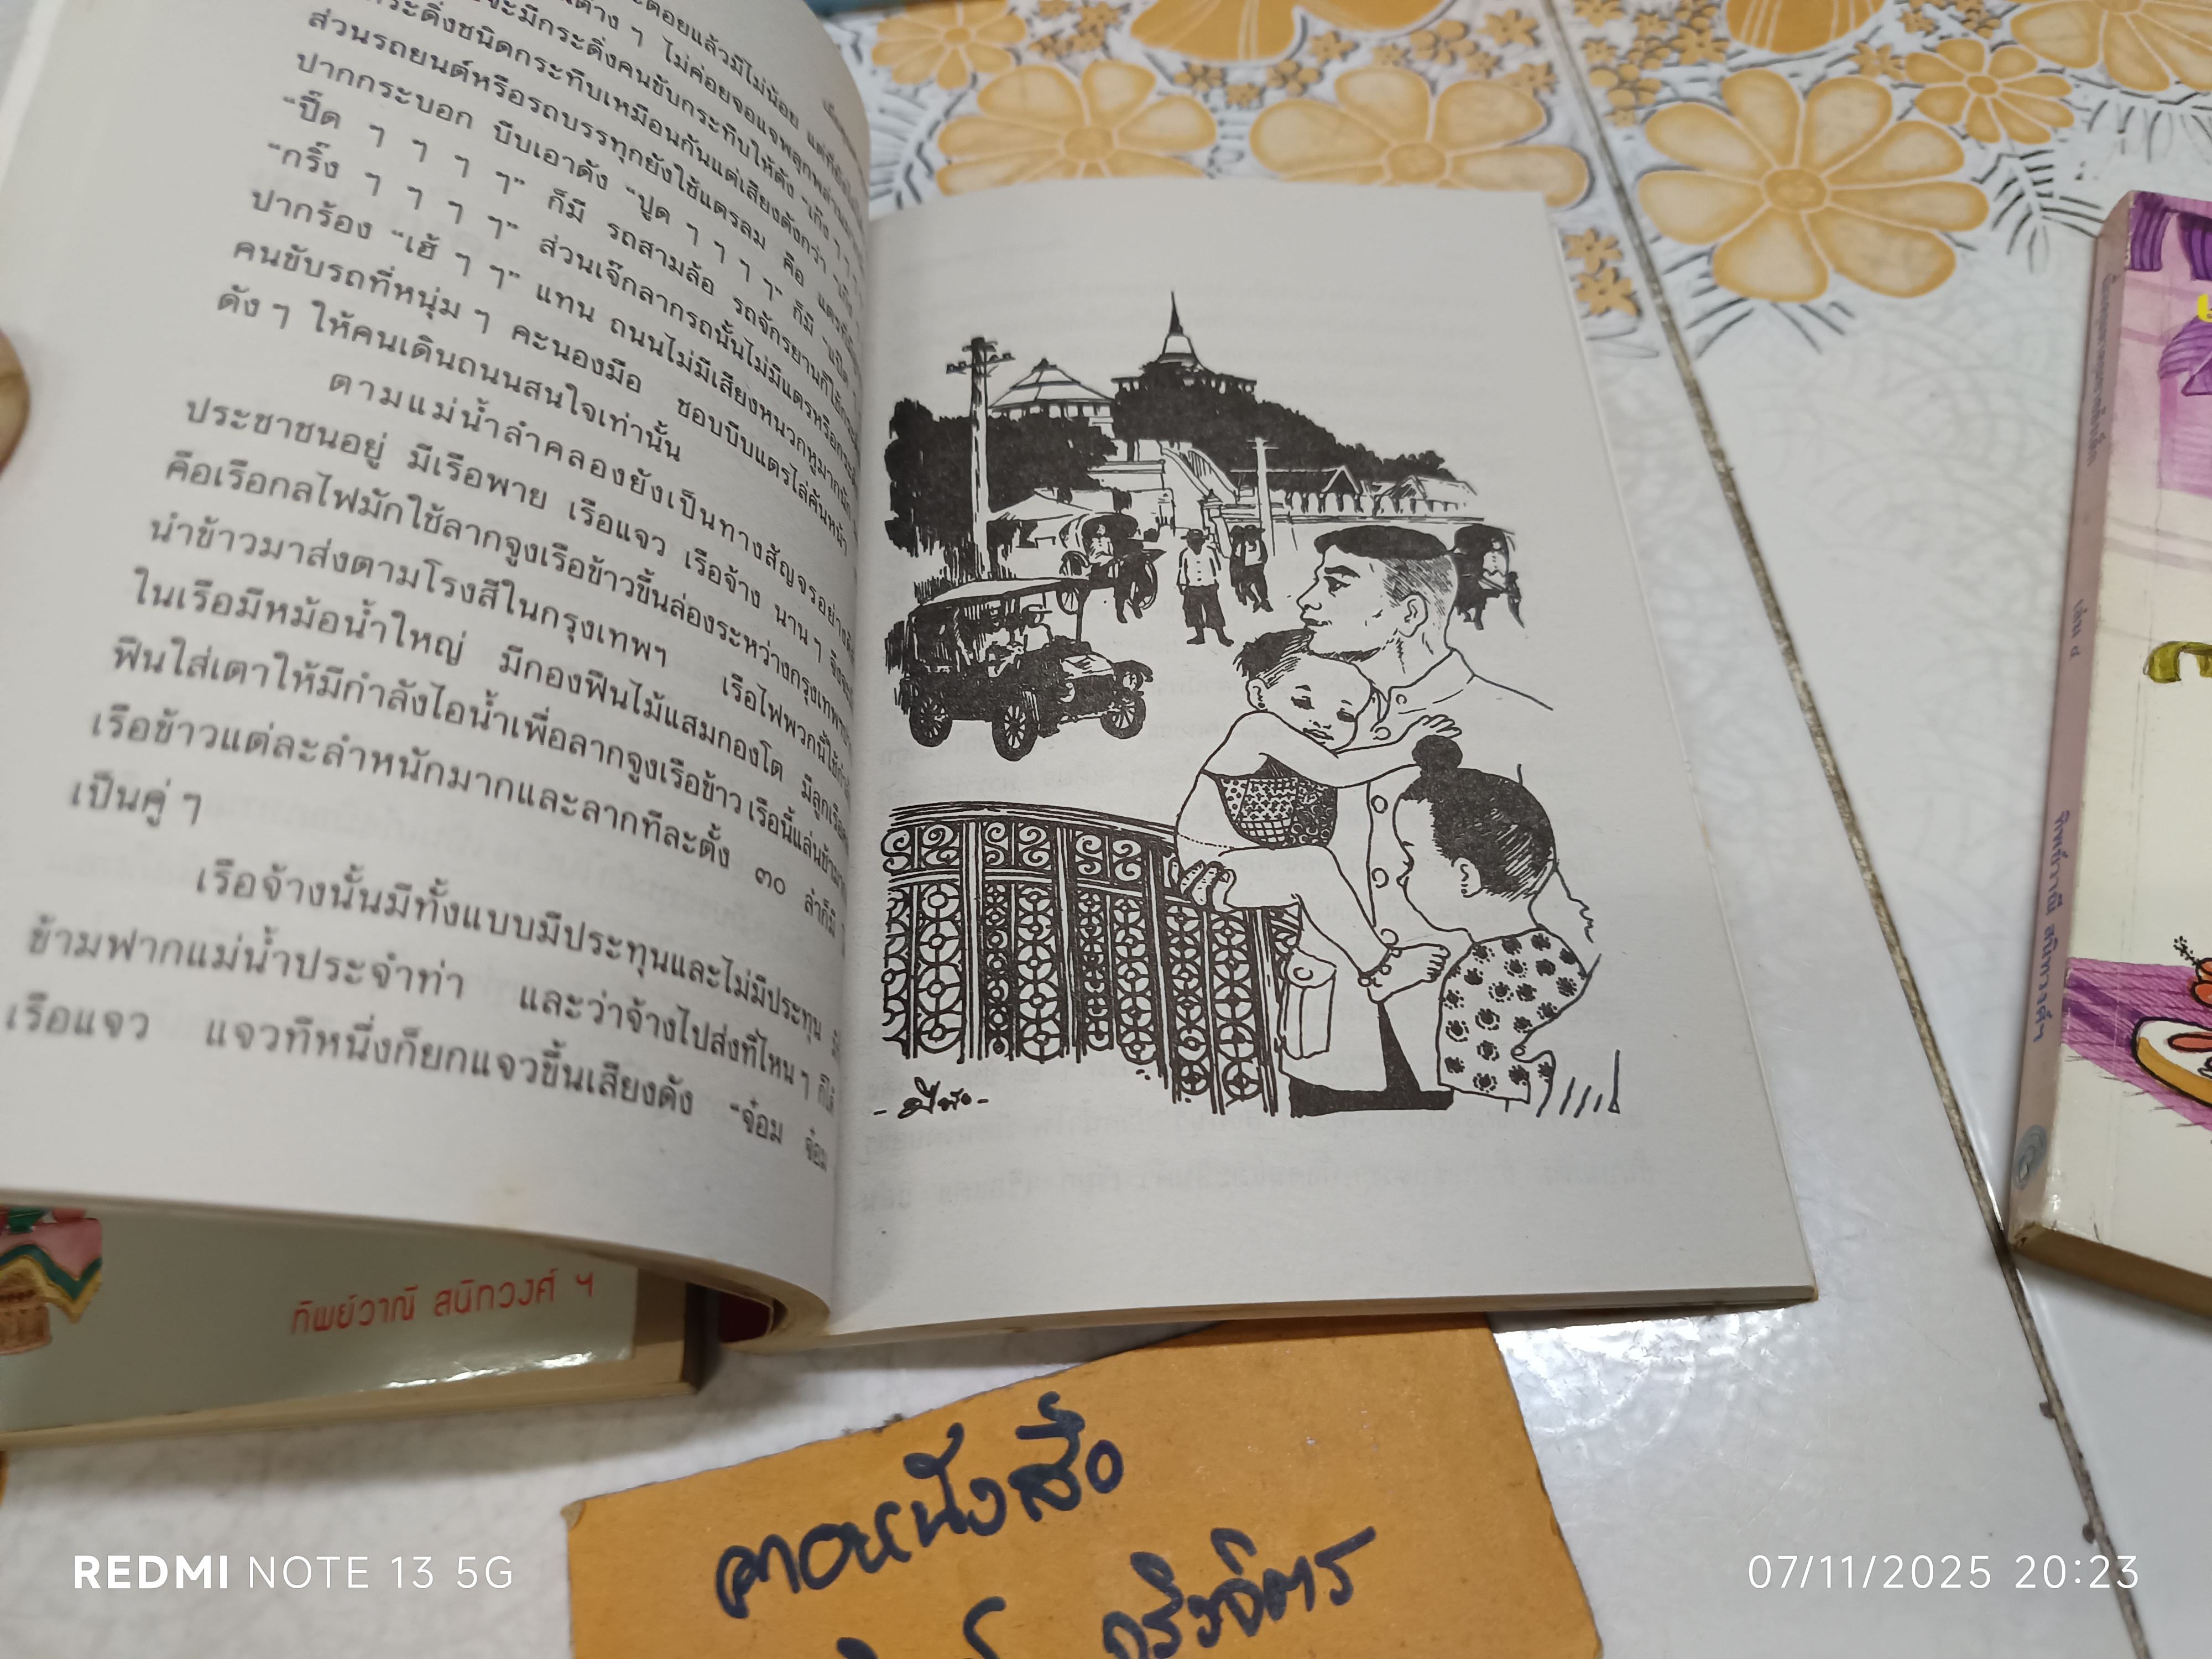 ะดอยแล้วมีไม่น้อย แต่ที่
นต่าง ๆ ไม่ค่อยจอแจพลุกพล่าน
จะมีกระดิ่งคนขับกระทืบให้ดัง “เก๊ง ๆ ๆ
กระดิ่งชนิดกระทืบเหมือนกันแต่เสียงดังกว่า
ส่วนรถยนต์หรือรถบรรทุกยังใช้แตรลม คือ แตรที่
ปากกระบอก บีบเอาดัง “ปูด ๆ ๆ ๆ ๆ” ก็มี “แป๊ด
“ปิ๊ด ๆ ๆ ๆ ๆ” ก็มี รถสามล้อ รถจักรยานก็ใช้กระดิ่ง
“กริ๊ง ๆ ๆ ๆ ๆ” ส่วนเจ๊กลากรถนั้นไม่มีแตรหรือกระดิ่ง
ปากร้อง “เฮ้ ๆ ๆ” แทน ถนนไม่มีเสียงหนวกหูมากนัก
คนขับรถที่หนุ่ม ๆ คะนองมือ ชอบบีบแตรไล่คันหน้า
ดัง ๆ ให้คนเดินถนนสนใจเท่านั้น
ตามแม่น้ำลำคลองยังเป็นทางสัญจรอย่าง
ประชาชนอยู่ มีเรือพาย เรือแจว เรือจ้าง นาน ๆ จึงจะ
คือเรือกลไฟมักใช้ลากจูงเรือข้าวขึ้นล่องระหว่างกรุงเทพฯ
นำข้าวมาส่งตามโรงสีในกรุงเทพฯ เรือไฟพวกนี้ใช้กำลัง
ในเรือมีหม้อน้ำใหญ่ มีกองฟืนไม้แสมกองโต มีลูกเรือ
ฟืนใส่เตาให้มีกำลังไอน้ำเพื่อลากจูงเรือข้าว เรือนี้แล่นช้ามาก
เรือข้าวแต่ละลำหนักมากและลากทีละตั้ง ๓๐ ลำก็มี
เป็นคู่ ๆ
เรือจ้างนั้นมีทั้งแบบมีประทุนและไม่มีประทุน
ข้ามฟากแม่น้ำประจำท่า และว่าจ้างไปส่งที่ไหน ๆ ก็ได้
เรือแจว แจวทีหนึ่งก็ยกแจวขึ้นเสียงดัง “จ๋อม จ๋อม
ทิพย์วาณี สนิทวงศ์ ฯ
เล่ม ๔
ทิพย์วาณี สนิทวงศ์ฯ
คาอหนังสือ
REDMI NOTE 13 5G
07/11/2025 20:23